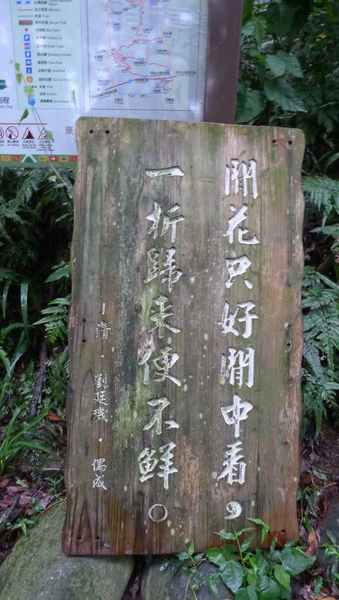 閒花只好閒中看，
一折歸來便不鮮。
—清．劉廷璣．偶成